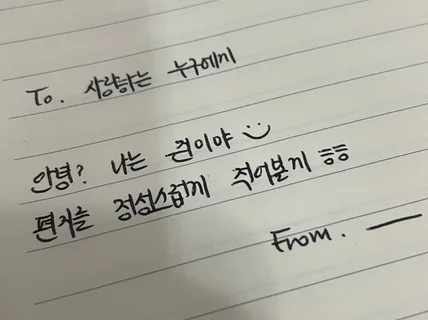 To. 사랑하는 누구에게
안녕? 나는 권이야 :)
편지를 정성스럽게 적어볼게 ㅎㅎ
From. —